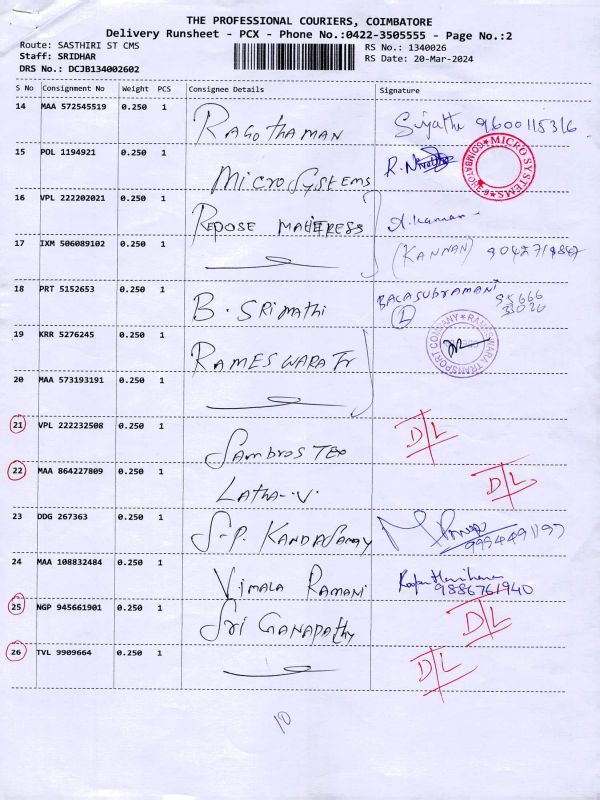 THE PROFESSIONAL COURIERS, COIMBATORE
Delivery Runsheet - PCX - Phone No.:0422-3505555 - Page No.:2
Route: SASTHIRI ST CMS RS No.: 1340026
Staff: SRIDHAR RS Date: 20-Mar-2024
DRS No.: DCJB134002602
S No Consignment No Weight PCS Consignee Details Signature
14 MAA 572545519 0.250 1 Ragothaman 9600115316
15 POL 1194921 0.250 1 Micro Systems
MICRO SYSTEMS
16 VPL 222202021 0.250 1 Repose Mattress A. Kannan
17 IXM 506089102 0.250 1 (KANNAN)
18 PRT 5152653 0.250 1 B. Srimathi BALASUBRAMANI
19 KRR 5276245 0.250 1 RAMESWARA Tr
RAMESWARA TRANSPORT COMPANY
20 MAA 573193191 0.250 1
21 VPL 222232508 0.250 1 Sambros Tex D/L
22 MAA 864227809 0.250 1 Latha. V. D/L
23 DDG 267363 0.250 1 S.P. Kandasamy
24 MAA 108832484 0.250 1 Vimala Ramani
9886761940
25 NGP 945661901 0.250 1 Sri Ganapathy D/L
26 TVL 9909664 0.250 1 D/L
10